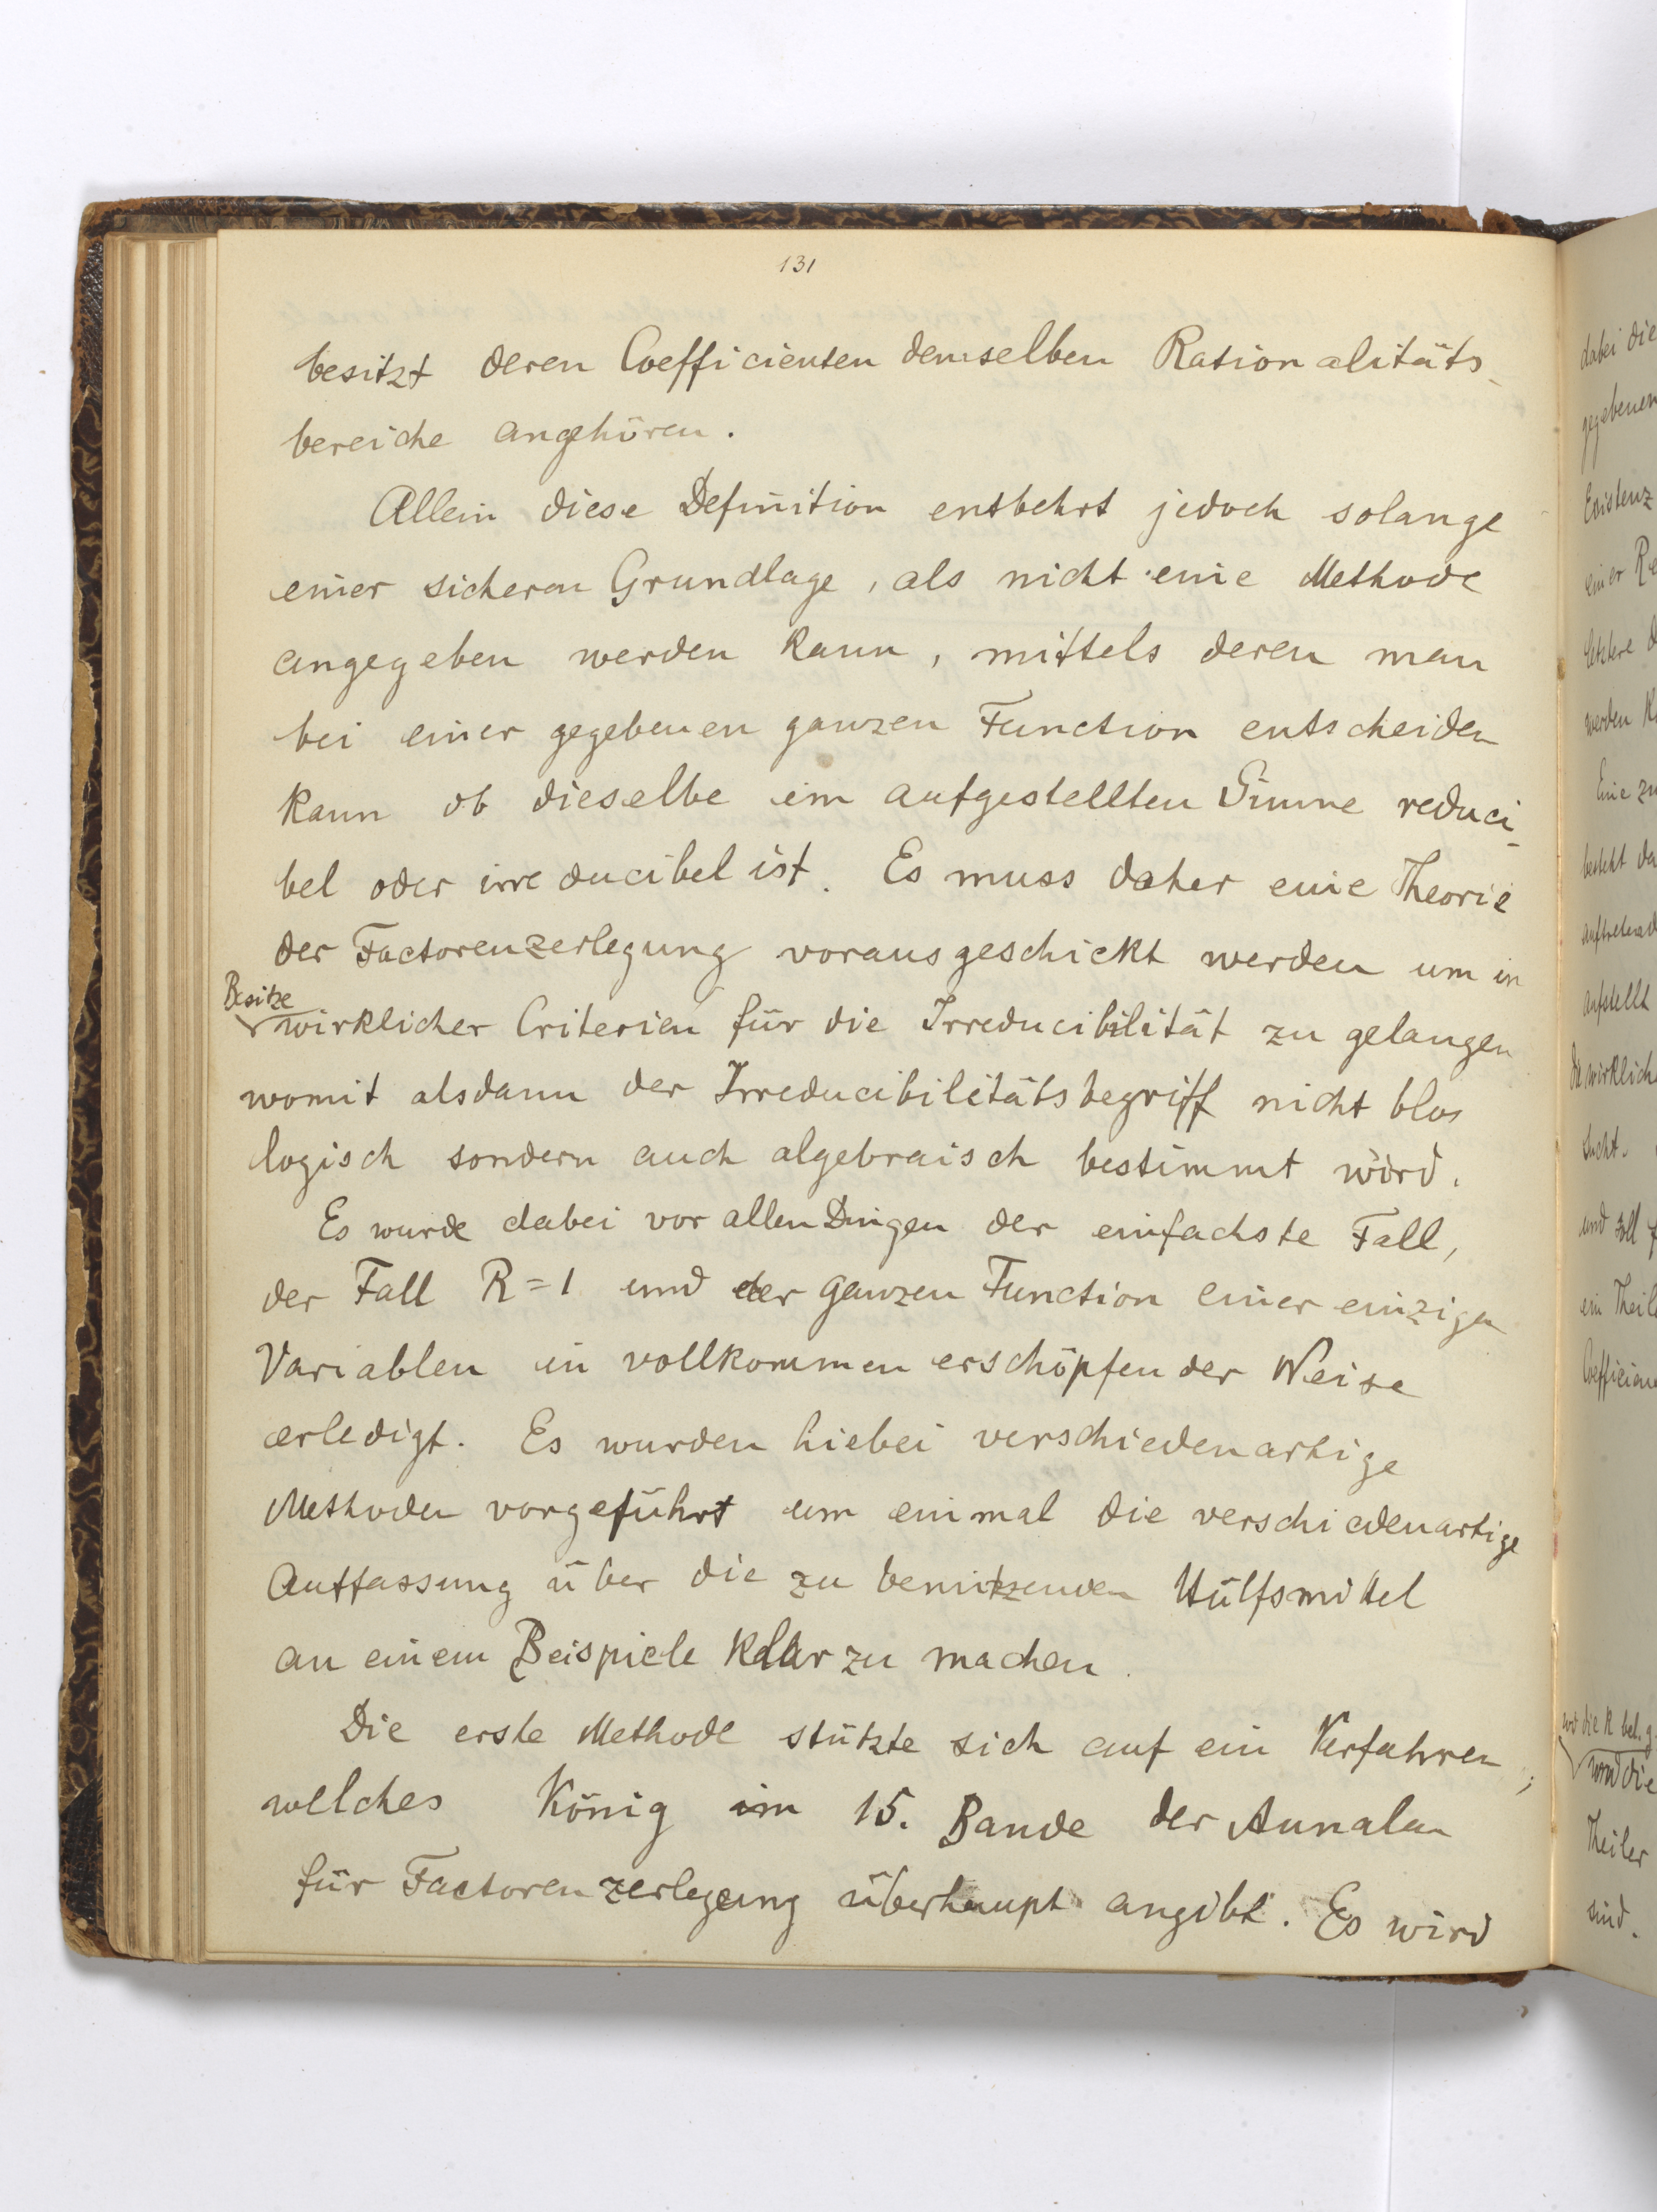 131
besitzt deren Coefficienten demselben Rationalitäts-
bereiche angehören.
Allein diese Definition entbehrt jedoch solange
einer sicheren Grundlage, als nicht eine Methode
angegeben werden kann, mittels deren man
bei einer gegebenen ganzen Function entscheiden
kann ob dieselbe im aufgestellten Sinne reduci-
bel oder irreducibel ist. Es muss daher eine Theorie
der Factorenzerlegung vorausgeschickt werden um in
Besitze
wirklicher Criterien für die Irreducibilität zu gelangen
womit alsdann der Irreducibilitätsbegriff nicht blos
logisch sondern auch algebraisch bestimmt wird.
Es wurde dabei vor allen Dingen der einfachste Fall,
der Fall R=1 und der ganzen Function einer einzigen
Variablen in vollkommen erschöpfender Weise
erledigt. Es wurden hiebei verschiedenartige
Methoden vorgeführt um einmal die verschiedenartige
Auffassung über die zu benützenden Hülfsmittel
an einem Beispiele klar zu machen.
Die erste Methode stützte sich auf ein Verfahren,
welches König im 15. Bande der Annalen
für Factorenzerlegung überhaupt angibt. Es wird
dabei die
gegebenen
Existenz
einer Re
letztere d
werden k
Eine zu
besteht da
auftretend
aufstellt
wirklich
sucht.
und soll f
ein Theil
Coefficien
und die
Theiler
sind.